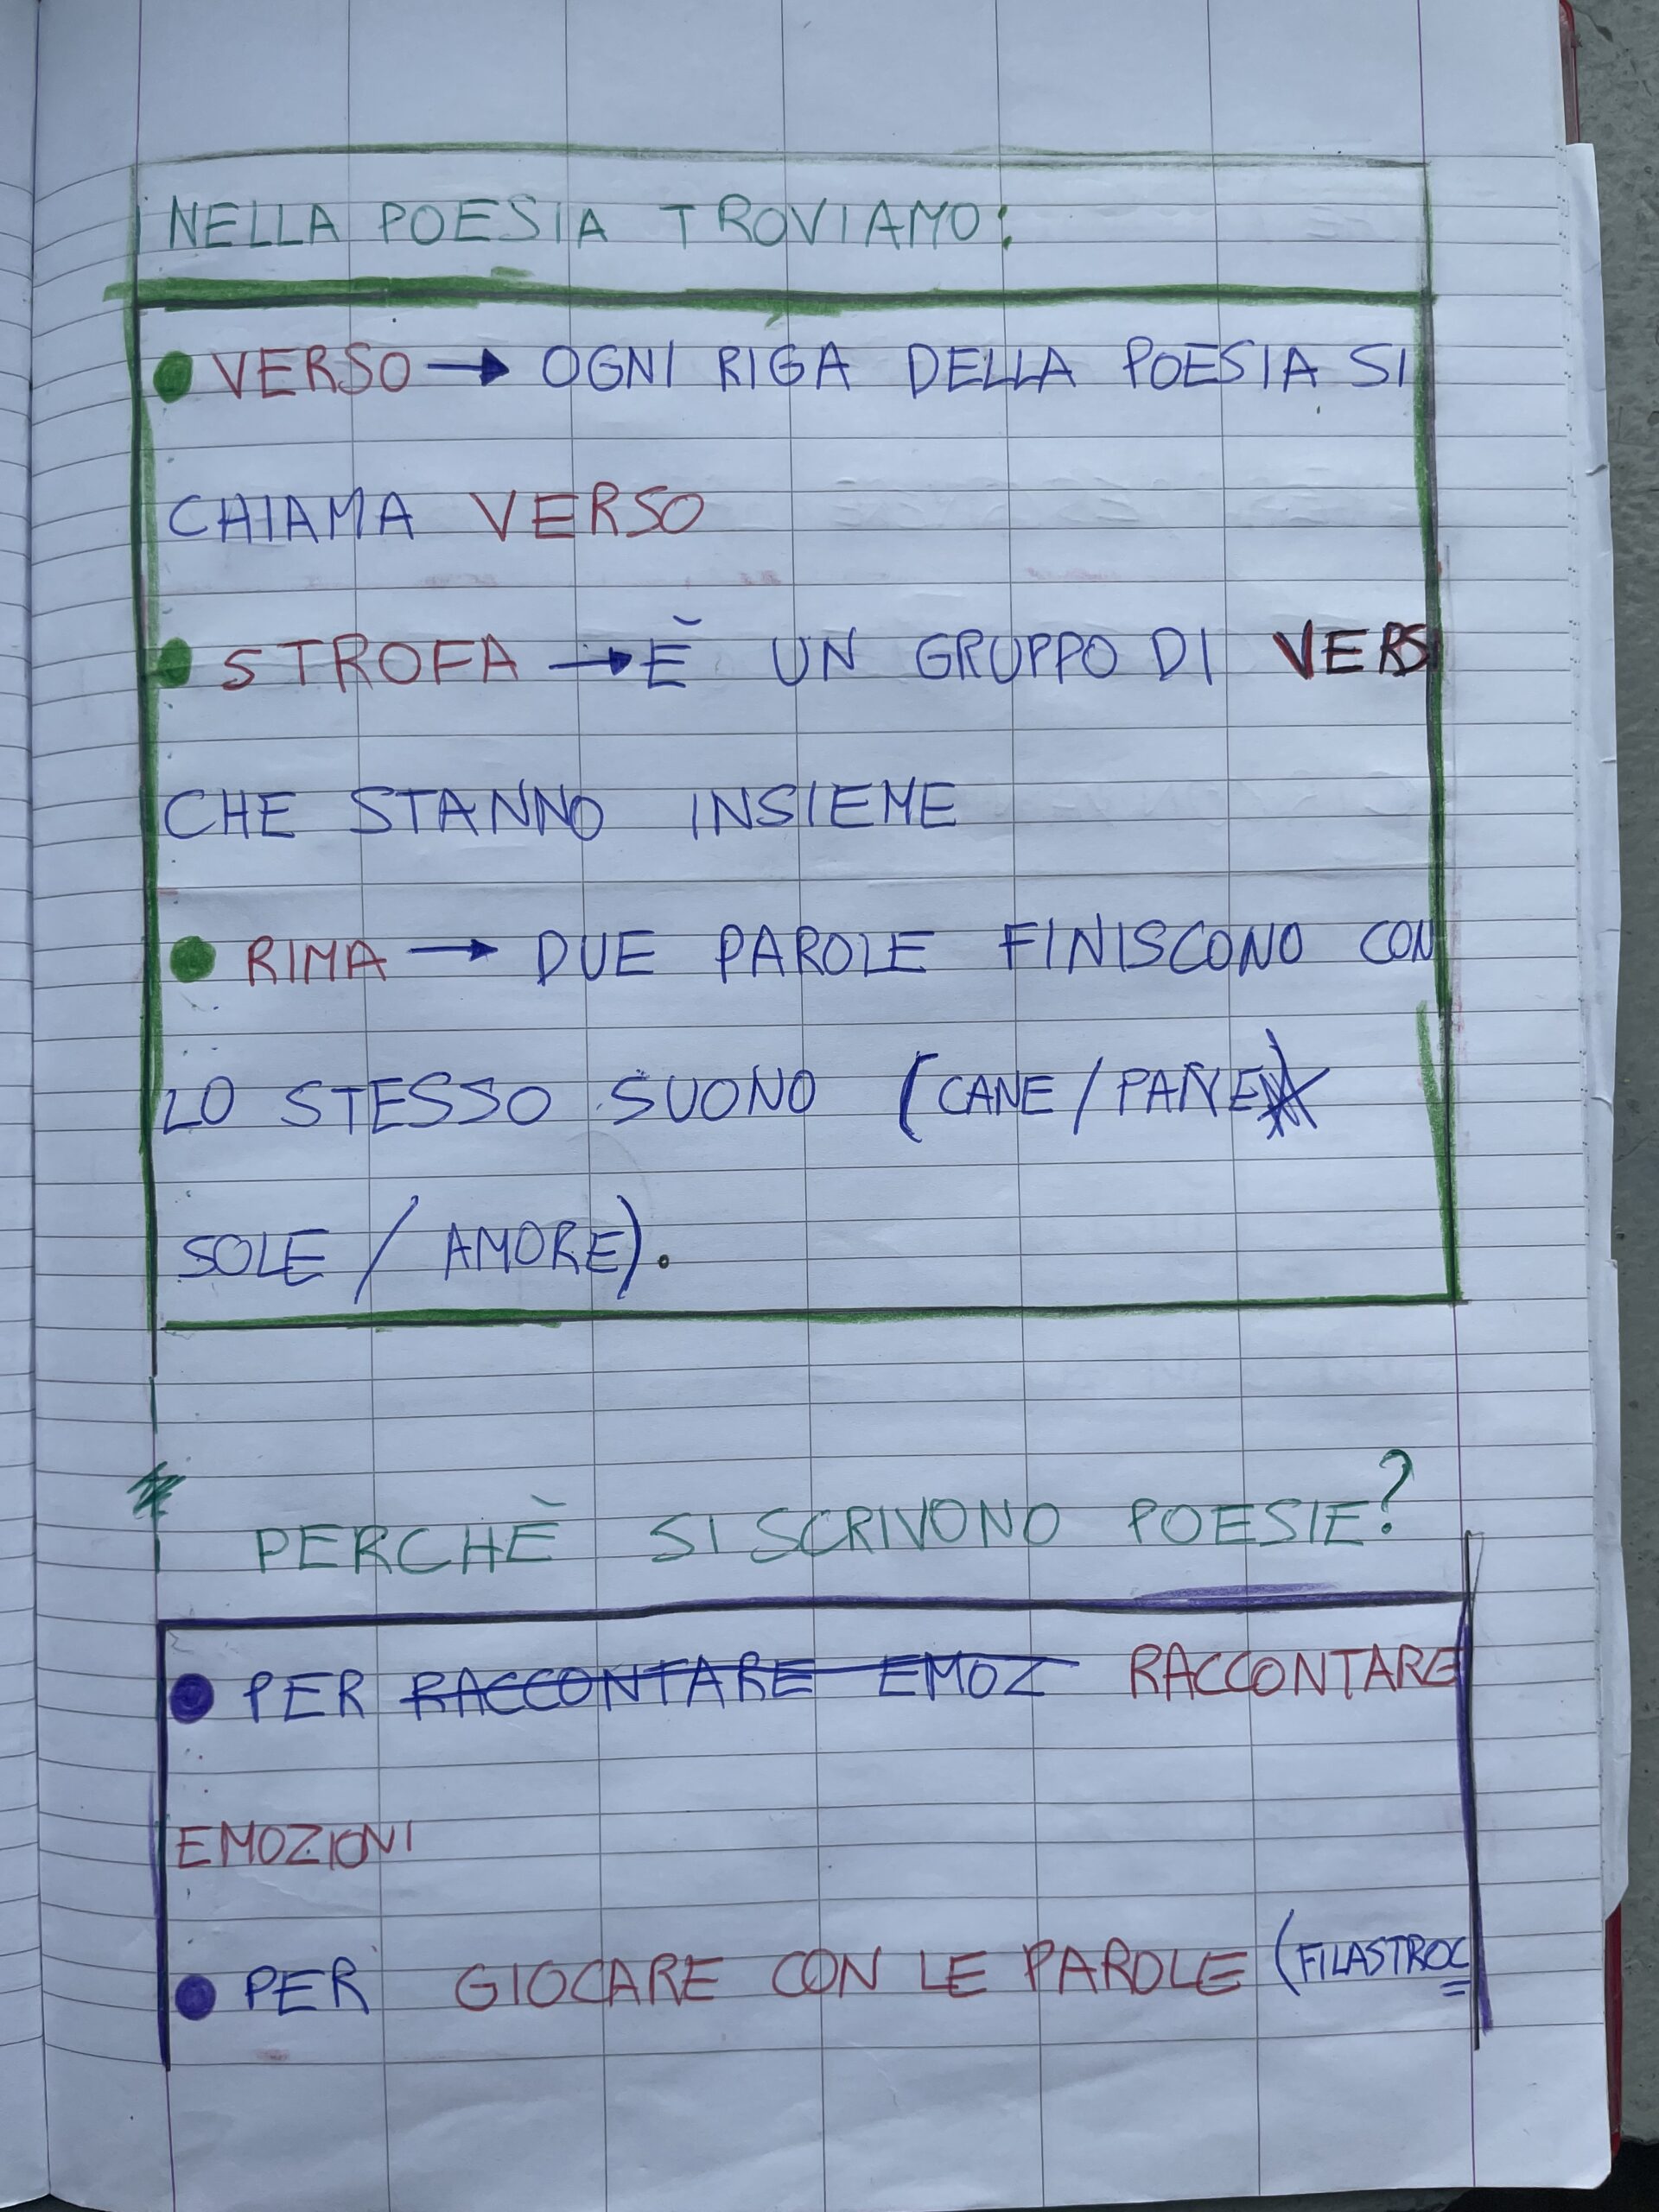 NELLA POESIA TROVIAMO:
● VERSO → OGNI RIGA DELLA POESIA SI
CHIAMA VERSO
● STROFA → È UN GRUPPO DI VERSI
CHE STANNO INSIEME
● RIMA → DUE PAROLE FINISCONO CON
LO STESSO SUONO (CANE / PANE
SOLE / AMORE).
PERCHÈ SI SCRIVONO POESIE?
● PER RACCONTARE EMOZ RACCONTARE
EMOZIONI
● PER GIOCARE CON LE PAROLE (FILASTROC